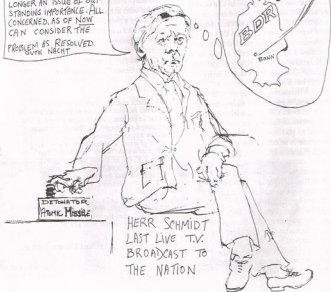 LONGER AN ISSUE OF OUT
STANDING IMPORTANCE. ALL
CONCERNED, AS OF NOW
CAN CONSIDER THE
PROBLEM AS RESOLVED.
GUTE NACHT
BDR
BONN
DETONATOR
ATOMIC MISSILE
HERR SCHMIDT
LAST LIVE T.V.
BROADCAST TO
THE NATION